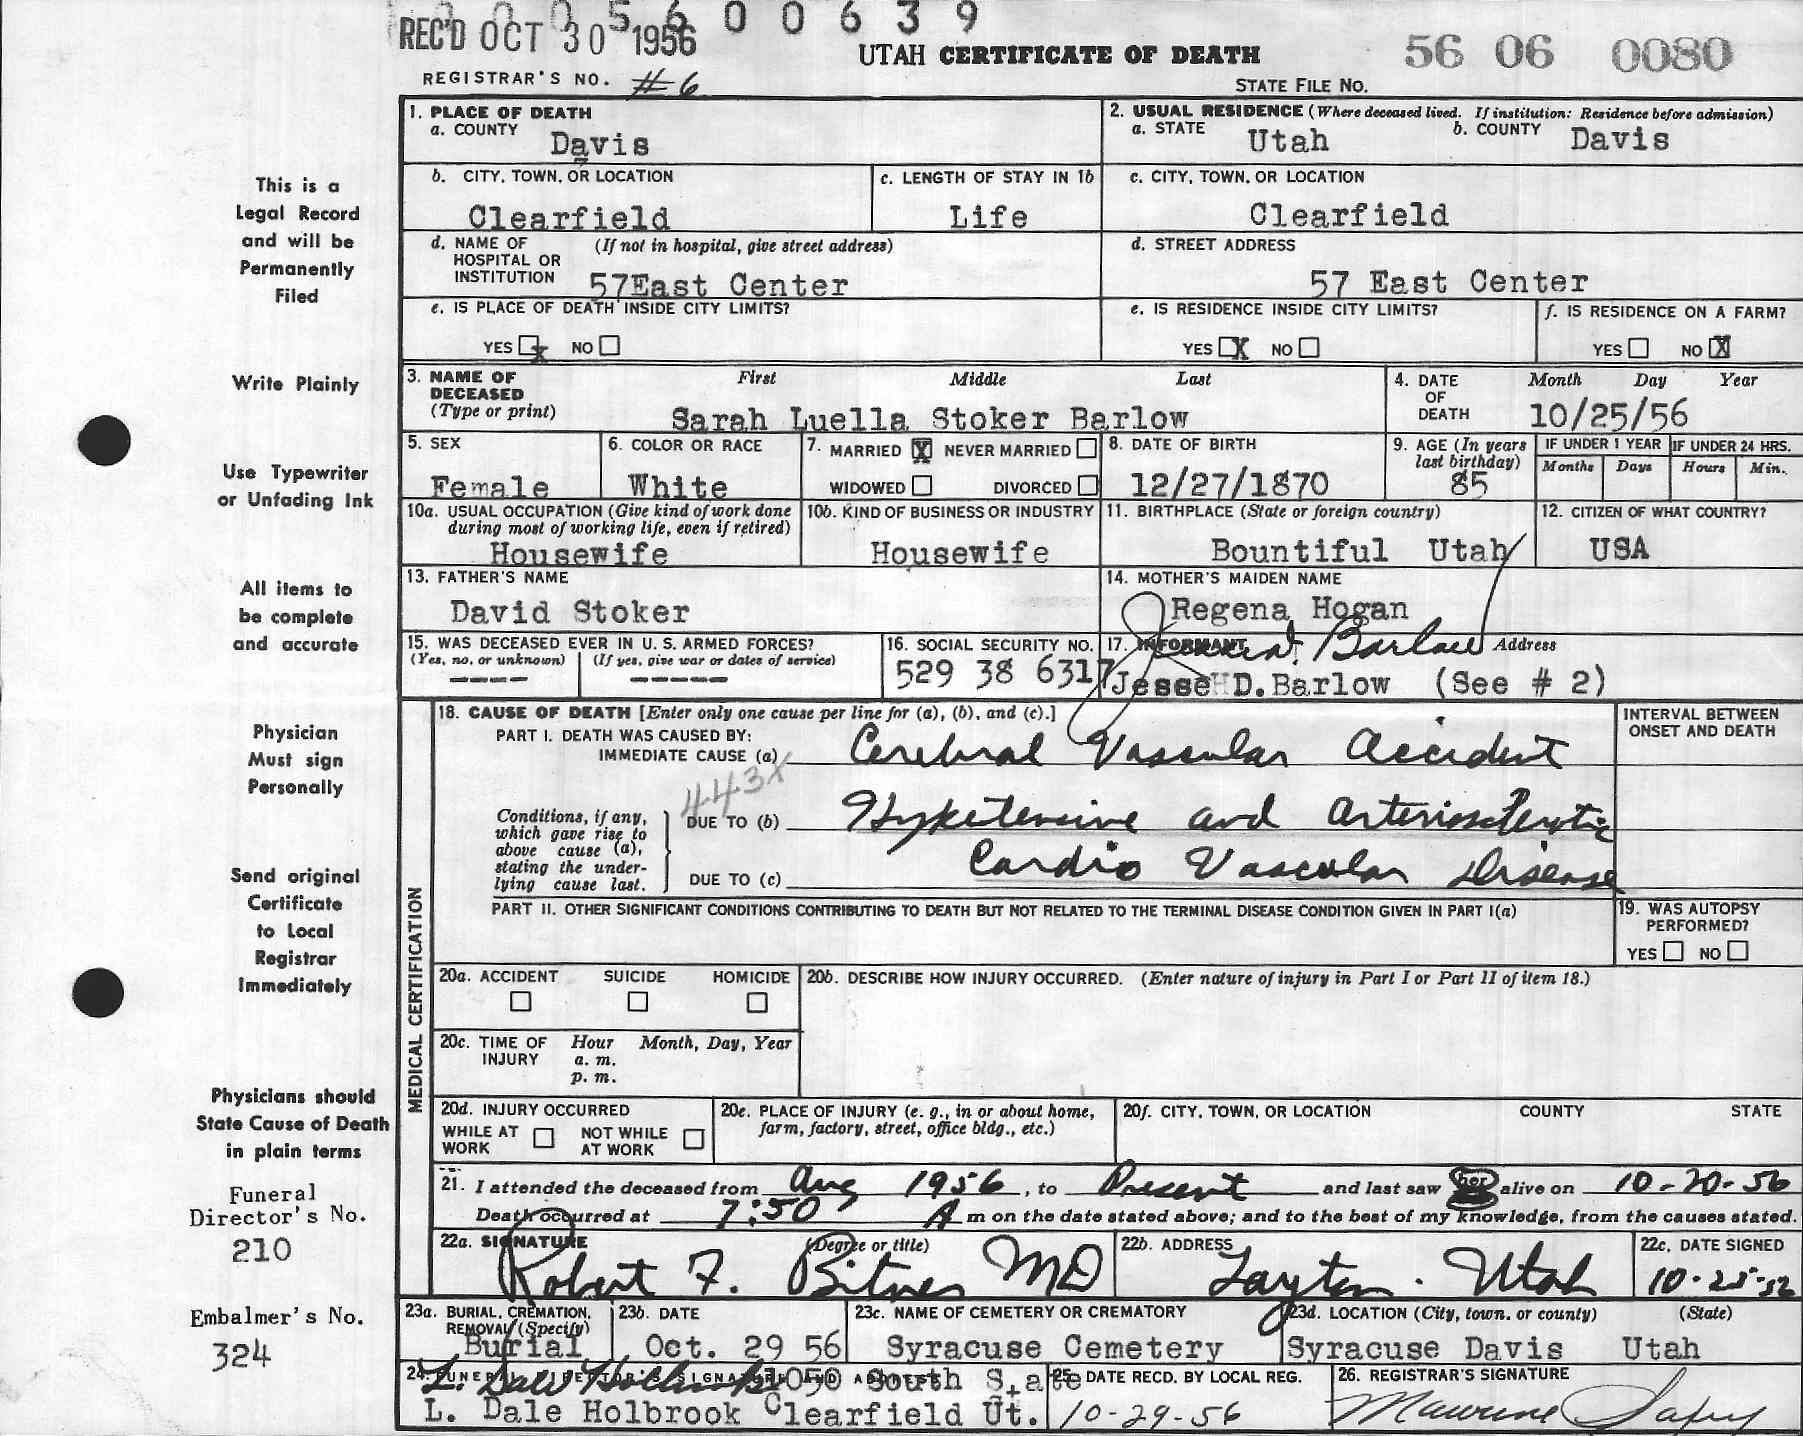 0 0 0 5 6 0 0 6 3 9
REC'D OCT 30 1956
UTAH CERTIFICATE OF DEATH
56 06 0080
REGISTRAR'S NO. #6
STATE FILE NO.
1. PLACE OF DEATH
a. COUNTY
Davis
2. USUAL RESIDENCE (Where deceased lived. If institution: Residence before admission)
a. STATE Utah b. COUNTY Davis
This is a
Legal Record
and will be
Permanently
Filed
b. CITY, TOWN, OR LOCATION
Clearfield
c. LENGTH OF STAY IN 1b
Life
c. CITY, TOWN, OR LOCATION
Clearfield
d. NAME OF (If not in hospital, give street address)
HOSPITAL OR
INSTITUTION 57East Center
d. STREET ADDRESS
57 East Center
e. IS PLACE OF DEATH INSIDE CITY LIMITS?
YES x NO
e. IS RESIDENCE INSIDE CITY LIMITS?
YES X NO
f. IS RESIDENCE ON A FARM?
YES NO X
Write Plainly
3. NAME OF DECEASED
(Type or print)
First Middle Last
Sarah Luella Stoker Barlow
4. DATE OF DEATH
Month Day Year
10/25/56
Use Typewriter
or Unfading Ink
5. SEX
Female
6. COLOR OR RACE
White
7. MARRIED X NEVER MARRIED
WIDOWED DIVORCED
8. DATE OF BIRTH
12/27/1870
9. AGE (In years
last birthday)
85
IF UNDER 1 YEAR
Months Days
IF UNDER 24 HRS.
Hours Min.
10a. USUAL OCCUPATION (Give kind of work done
during most of working life, even if retired)
Housewife
10b. KIND OF BUSINESS OR INDUSTRY
Housewife
11. BIRTHPLACE (State or foreign country)
Bountiful Utah
12. CITIZEN OF WHAT COUNTRY?
USA
All items to
be complete
and accurate
13. FATHER'S NAME
David Stoker
14. MOTHER'S MAIDEN NAME
Regena Hogan
15. WAS DECEASED EVER IN U. S. ARMED FORCES?
(Yes, no, or unknown) (If yes, give war or dates of service)
---- -----
16. SOCIAL SECURITY NO.
529 38 6317
17. INFORMANT Barlow Address
Jesse D. Barlow (See # 2)
Physician
Must sign
Personally
MEDICAL CERTIFICATION
18. CAUSE OF DEATH [Enter only one cause per line for (a), (b), and (c).]
PART I. DEATH WAS CAUSED BY:
IMMEDIATE CAUSE (a) Cerebral Vascular Accident
INTERVAL BETWEEN
ONSET AND DEATH
443x
Conditions, if any,
which gave rise to
above cause (a),
stating the under-
lying cause last.
DUE TO (b) Hypertensive and Arteriosclerotic
DUE TO (c) Cardio Vascular Disease
Send original
Certificate
to Local
Registrar
Immediately
PART II. OTHER SIGNIFICANT CONDITIONS CONTRIBUTING TO DEATH BUT NOT RELATED TO THE TERMINAL DISEASE CONDITION GIVEN IN PART I(a)
19. WAS AUTOPSY
PERFORMED?
YES NO
20a. ACCIDENT SUICIDE HOMICIDE
20b. DESCRIBE HOW INJURY OCCURRED. (Enter nature of injury in Part I or Part II of item 18.)
20c. TIME OF INJURY
Hour Month, Day, Year
a. m.
p. m.
Physicians should
State Cause of Death
in plain terms
20d. INJURY OCCURRED
WHILE AT WORK NOT WHILE AT WORK
20e. PLACE OF INJURY (e. g., in or about home,
farm, factory, street, office bldg., etc.)
20f. CITY, TOWN, OR LOCATION COUNTY STATE
21. I attended the deceased from Aug 1956, to Present and last saw her alive on 10-20-56
Death occurred at 7:50 A m on the date stated above; and to the best of my knowledge, from the causes stated.
Funeral
Director's No.
210
22a. SIGNATURE (Degree or title)
Robert F. Bitner MD
22b. ADDRESS
Layton. Utah
22c. DATE SIGNED
10-25-56
Embalmer's No.
324
23a. BURIAL, CREMATION,
REMOVAL (Specify)
Burial
23b. DATE
Oct. 29 56
23c. NAME OF CEMETERY OR CREMATORY
Syracuse Cemetery
23d. LOCATION (City, town, or county) (State)
Syracuse Davis Utah
24. FUNERAL DIRECTOR'S SIGNATURE AND ADDRESS
L. Dale Holbrook 1050 South State
L. Dale Holbrook Clearfield Ut.
25. DATE RECD. BY LOCAL REG.
10-29-56
26. REGISTRAR'S SIGNATURE